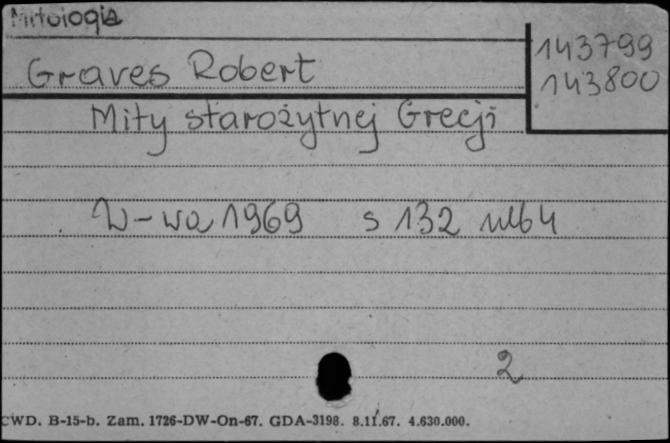 Mitologia
143799
Graves Robert
143800
Mity starożytnej Grecji
W-wa 1969 s 132 nlb4
2
CWD. B-15-b. Zam. 1726-DW-On-67. GDA-3198. 8.11.67. 4.630.000.